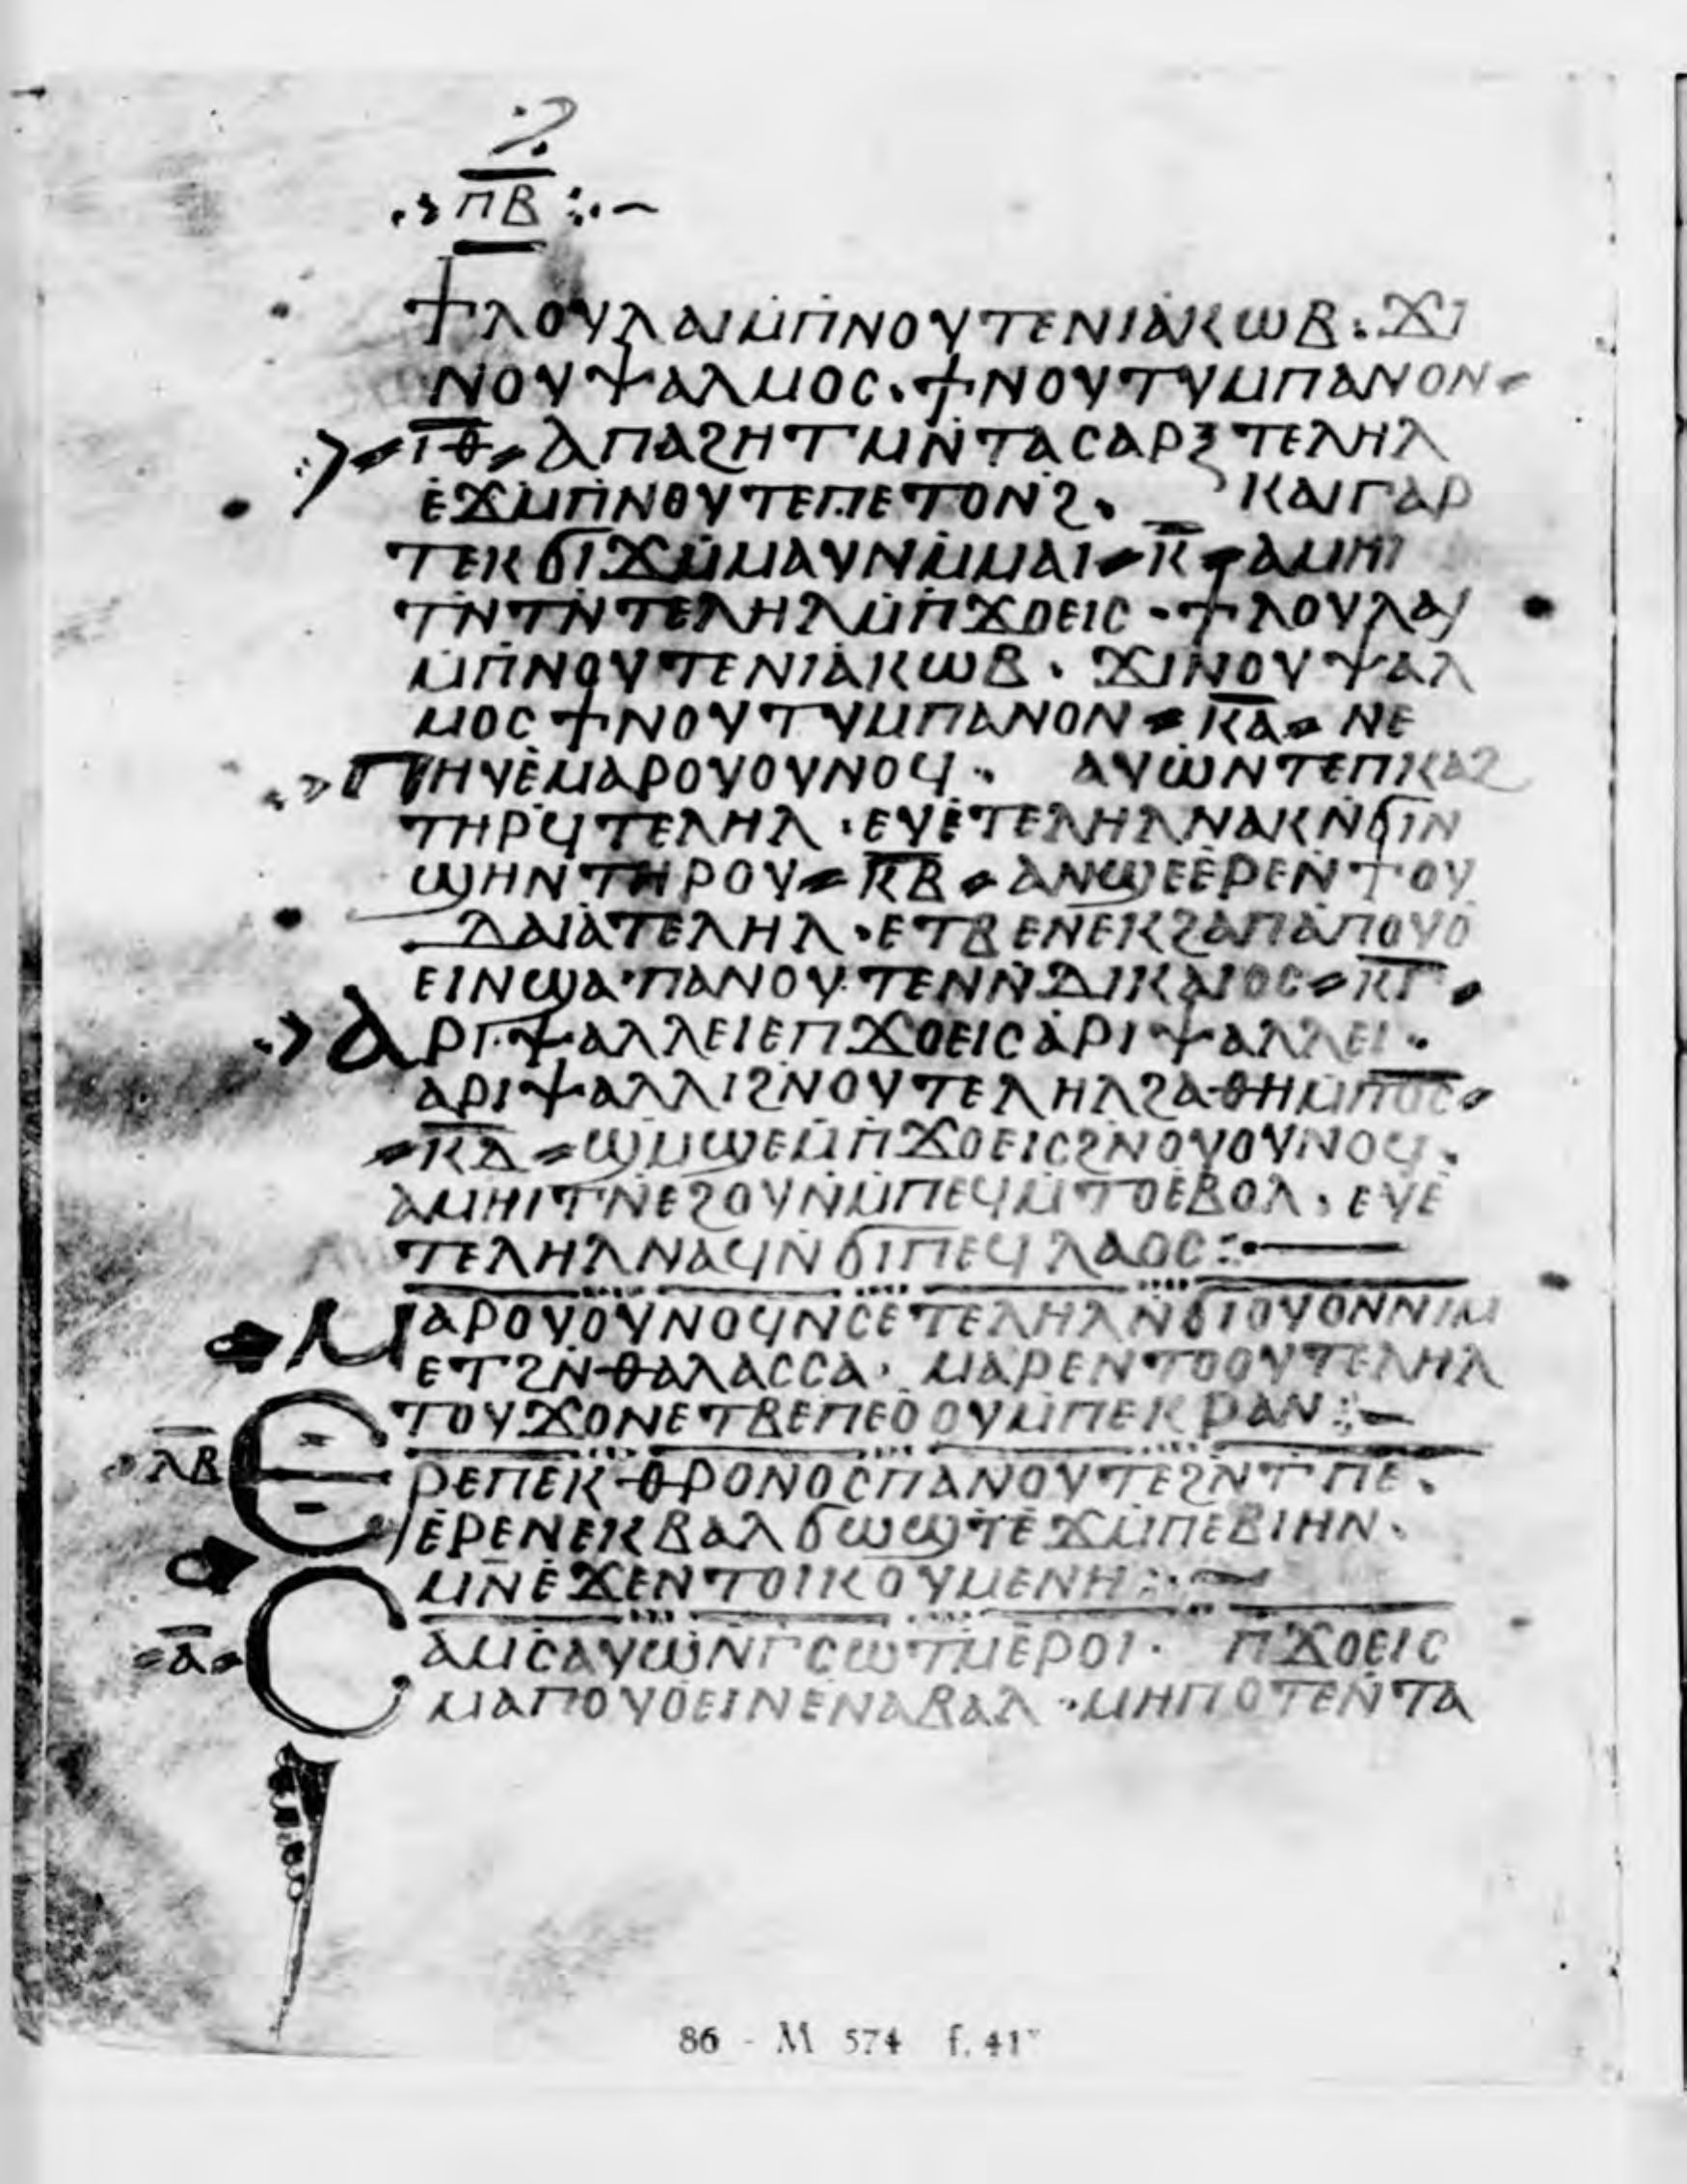 ⲡⲃ
ϯⲗⲟⲩⲗⲁⲓⲙⲡⲛⲟⲩⲧⲉⲛⲓⲁⲕⲱⲃ. ϫⲓ
ⲛⲟⲩⲯⲁⲗⲙⲟⲥ. ϯⲛⲟⲩⲧⲩⲙⲡⲁⲛⲟⲛ
ⲓⲑ ⲁⲡⲁϩⲏⲧⲙⲛⲧⲁⲥⲁⲣⲝⲧⲉⲗⲏⲗ
ⲉϫⲙⲡⲛⲟⲩⲧⲉⲡⲉⲧⲟⲛϩ. ⲕⲁⲓⲅⲁⲣ
ⲧⲉⲕϭⲓϫⲙⲙⲁⲩⲛⲙⲙⲁⲓ ⲕ ⲁⲙⲏⲓ
ⲧⲛⲧⲛⲧⲉⲗⲏⲗⲙⲡϫⲟⲉⲓⲥ · ϯⲗⲟⲩⲗⲁⲓ
ⲙⲡⲛⲟⲩⲧⲉⲛⲓⲁⲕⲱⲃ · ϫⲓⲛⲟⲩⲯⲁⲗ
ⲙⲟⲥϯⲛⲟⲩⲧⲩⲙⲡⲁⲛⲟⲛ ⲕⲁ ⲛⲉ
ⲡⲏⲩⲉⲙⲁⲣⲟⲩⲟⲩⲛⲟϥ · ⲁⲩⲱⲛⲧⲉⲡⲕⲁϩ
ⲧⲏⲣϥⲧⲉⲗⲏⲗ · ⲉⲩⲉⲧⲉⲗⲏⲗⲛⲁⲕⲛϭⲓⲛ
ϣⲏⲛⲧⲏⲣⲟⲩ ⲕⲃ ⲁⲛϣⲉⲉⲣⲉⲛϯⲟⲩ
ⲇⲁⲓⲁⲧⲉⲗⲏⲗ · ⲉⲧⲃⲉⲛⲉⲕϩⲁⲡⲁⲡⲟⲩⲟ
ⲉⲓⲛϣⲁⲡⲁⲛⲟⲩⲧⲉⲛⲛⲇⲓⲕⲁⲓⲟⲥ ⲕⲅ
ⲁⲣⲓⲯⲁⲗⲗⲉⲓⲉⲡϫⲟⲉⲓⲥⲁⲣⲓⲯⲁⲗⲗⲉⲓ ·
ⲁⲣⲓⲯⲁⲗⲗⲓϩⲛⲟⲩⲧⲉⲗⲏⲗϩⲁⲑⲏⲙⲡⲟⲥ
ⲕⲇ ϣⲙϣⲉⲙⲡϫⲟⲉⲓⲥϩⲛⲟⲩⲟⲩⲛⲟϥ ·
ⲁⲙⲏⲓⲧⲛⲉϩⲟⲩⲛⲙⲡⲉϥⲙⲧⲟⲉⲃⲟⲗ · ⲉⲩⲉ
ⲧⲉⲗⲏⲗⲛⲁϥⲛϭⲓⲡⲉϥⲗⲁⲟⲥ
ⲙⲁⲣⲟⲩⲟⲩⲛⲟϥⲛⲥⲉⲧⲉⲗⲏⲗⲛϭⲓⲟⲩⲟⲛⲛⲓⲙ
ⲉⲧϩⲛⲑⲁⲗⲁⲥⲥⲁ · ⲙⲁⲣⲉⲛⲧⲟⲟⲩⲧⲉⲗⲏⲗ
ⲧⲟⲩϫⲟⲛⲉⲧⲃⲉⲡⲉⲟⲟⲩⲙⲡⲉⲕⲣⲁⲛ
ⲗⲃ ⲉⲣⲉⲡⲉⲕⲑⲣⲟⲛⲟⲥⲡⲁⲛⲟⲩⲧⲉϩⲛⲧⲡⲉ ·
ⲉⲣⲉⲛⲉⲕⲃⲁⲗϭⲱϣⲧⲉϫⲙⲡⲉⲃⲓⲏⲛ ·
ⲙⲛⲉϫⲉⲛⲧⲟⲓⲕⲟⲩⲙⲉⲛⲏ
ⲁ ⲥⲁⲙⲥⲁⲩⲱⲛⲅⲥⲱⲧⲙⲉⲣⲟⲓ · ⲡϫⲟⲉⲓⲥ
ⲙⲁⲡⲟⲩⲟⲉⲓⲛⲉⲛⲁⲃⲁⲗ · ⲙⲏⲡⲟⲧⲉⲛⲧⲁ
86 - M 574 f. 41ᵛ